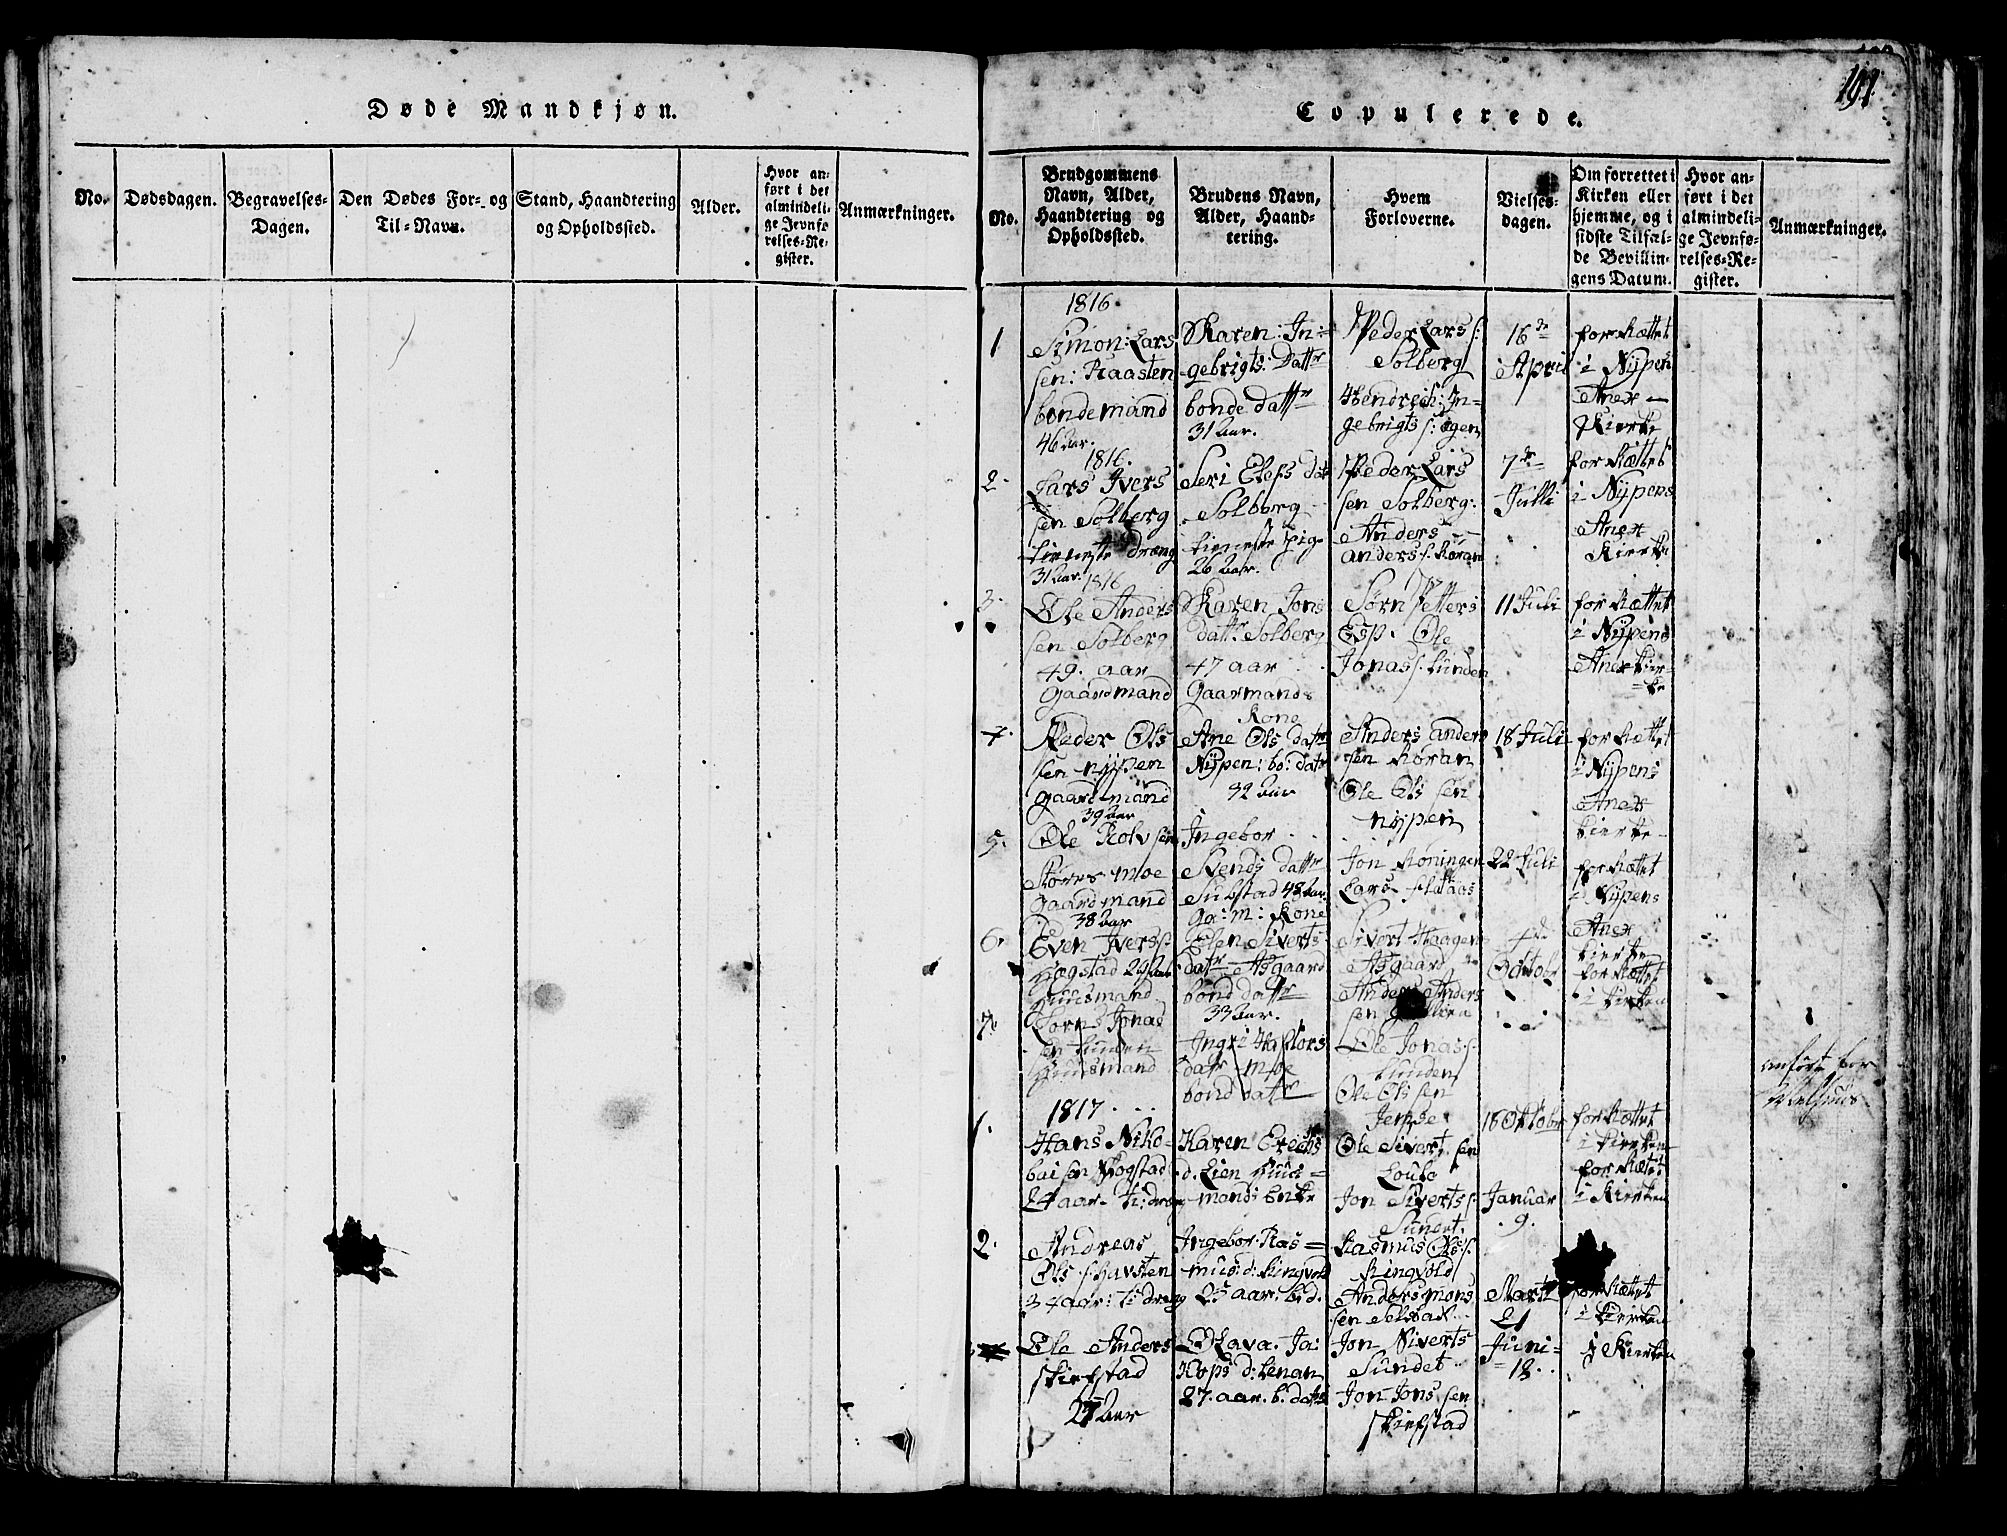 Døde Mandkjøn.
No.
Dødsdagen.
Begravelses-
Dagen.
Den Dødes For- og
Til-Navn.
Stand, Haandtering
og Opholdssted.
Alder.
Hvor an-
ført i det
almindeli-
ge Jevnfø-
relses-Re-
gister.
Anmærkninger.
191
Copulerede.
No.
Brudgommens
Navn, Alder,
Haandtering og
Opholdssted.
Brudens Navn,
Alder, Haand-
tering.
Hvem
Forloverne.
Vielses-
dagen.
Om forrettet i
Kirken eller
hjemme, og i
sidste Tilfæl-
de Bevillin-
gens Datum.
Hvor an-
ført i det
almindeli-
ge Jevnfø-
relses-Re-
gister.
Anmærkninger.
1816.
1
Simon: Lars
sen: Raasten
bonde mand
46 aar.
Karen: In=
gebrigts: Datr
bonde datr
31 aar.
Peder Lars s:
Solberg
Hendrech: In=
gebrigts s: øgen
16de
April
forRættet
i Nypen
Anex
Kierke
1816.
2.
Lars Ivers
sen Solberg
tieneste dræng
31 aar.
Seri Elefs dat
Solberg
tieneste pig
26 aar.
Peder Lars
sen Solberg.
Anders
anders s: Køran
7de
Julli
forRættet
i Nypens
Anex
Kierke
1816
3.
Ole Anders
sen Solberg
49. aar
Gaardmand
Karen Jons
datr Solberg
47 aar
Gaarmands
Kone
Sørn Petters
Esp. Ole
Jonas s: Lunden
11 Juli
forRættet
i Nypens
Anexkier=
=ke
4.
Peder Ols
sen nypen
gaard mand
39 aar
Ane Ols datr
Nypen: bo: datr
32 aar
Anders anders
sen Køran
Ole Ols sen
nypen
18 Juli
forRættet
i Nypens
Anex
kierke
5.
Ole Rolv sen
Støres moe
gaardmand
38 aar
Ingebor
Svends datr
Sukstad 48 aar
Ga: m: Kone
Jon Køningen
Lars flataas
22 Juli
forRættet
i Nypens
Anex
kierke
6.
Even Ivers s:
Høgstad 29 aar
Huusmand
Elen Siverts
datr Asgaard
bond datr
33 aar.
Sivert Haagens
Asgaard
Anders Anders
sen
4de
Octobr
forRættet
i kierken
7.
Jonas
sen Lunden
Huusmand
Ingri Haftors
datr moe
bond datr
Ole Jonas s:
Lunden
Ole Ols sen
Jerpse
18 Oktobr
forRættet
i kierken
anført for
Melhuus
1817
1.
Hans Niko=
lai sen Høgstad
24 aar. ti: dræng
Karen Erechs
d. Lien Huus=
mands Enke
Ole Sivert sen
Loubo
Jon Siverts s:
Sundet.
Januar
9.
forRættet
i Kierken
2.
Andreas
Ols s: havsten
34 aar: ti: dreng
Ingebor Ras=
mus: d: Ringvold
25 aar: b. d.
Rasmus Ols s:
Ringvold
Anders mons
sen Selsbak
Marti
21
forRættet
i kierken
Ole Anders
skiefstad
27 aar
Olava. Ja:
Kops d: Lenan
27. aar. b. datr
Jon Siverts
Sundet
Jon Jons sen
skiefstad
Juni=
=18.
i Kierken